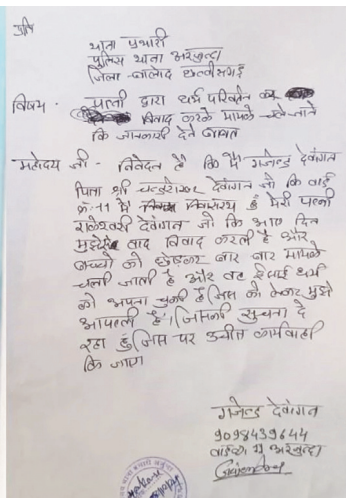 प्रति
थाना प्रभारी
पुलिस थाना अरजुन्दा
जिला-बालोद छत्तीसगढ़
विषय - पत्नी द्वारा धर्म परिवर्तन कर
विवाद करके मायके चले जाने
कि जानकारी देने बाबत
महोदय जी - निवेदन है कि मैं गजेन्द्र देवांगन
पिता श्री चन्द्रशेखर देवांगन जो कि वार्ड
क्र-11 में हूं मेरी पत्नी
राजेश्वरी देवांगन जो कि आए दिन
मुझसे वाद विवाद करती है और
बच्चो को छोड़कर बार बार मायके
चली जाती है और वह ईसाई धर्म
को अपना चुकी है जिस को लेकर मुझे
आपत्ती है। जिसकी सुचना दे
रहा हुँ जिस पर उचीत कार्यवाही
कि जाए
गजेन्द्र देवांगन
9098439644
वार्ड क्र 11 अरजुन्दा